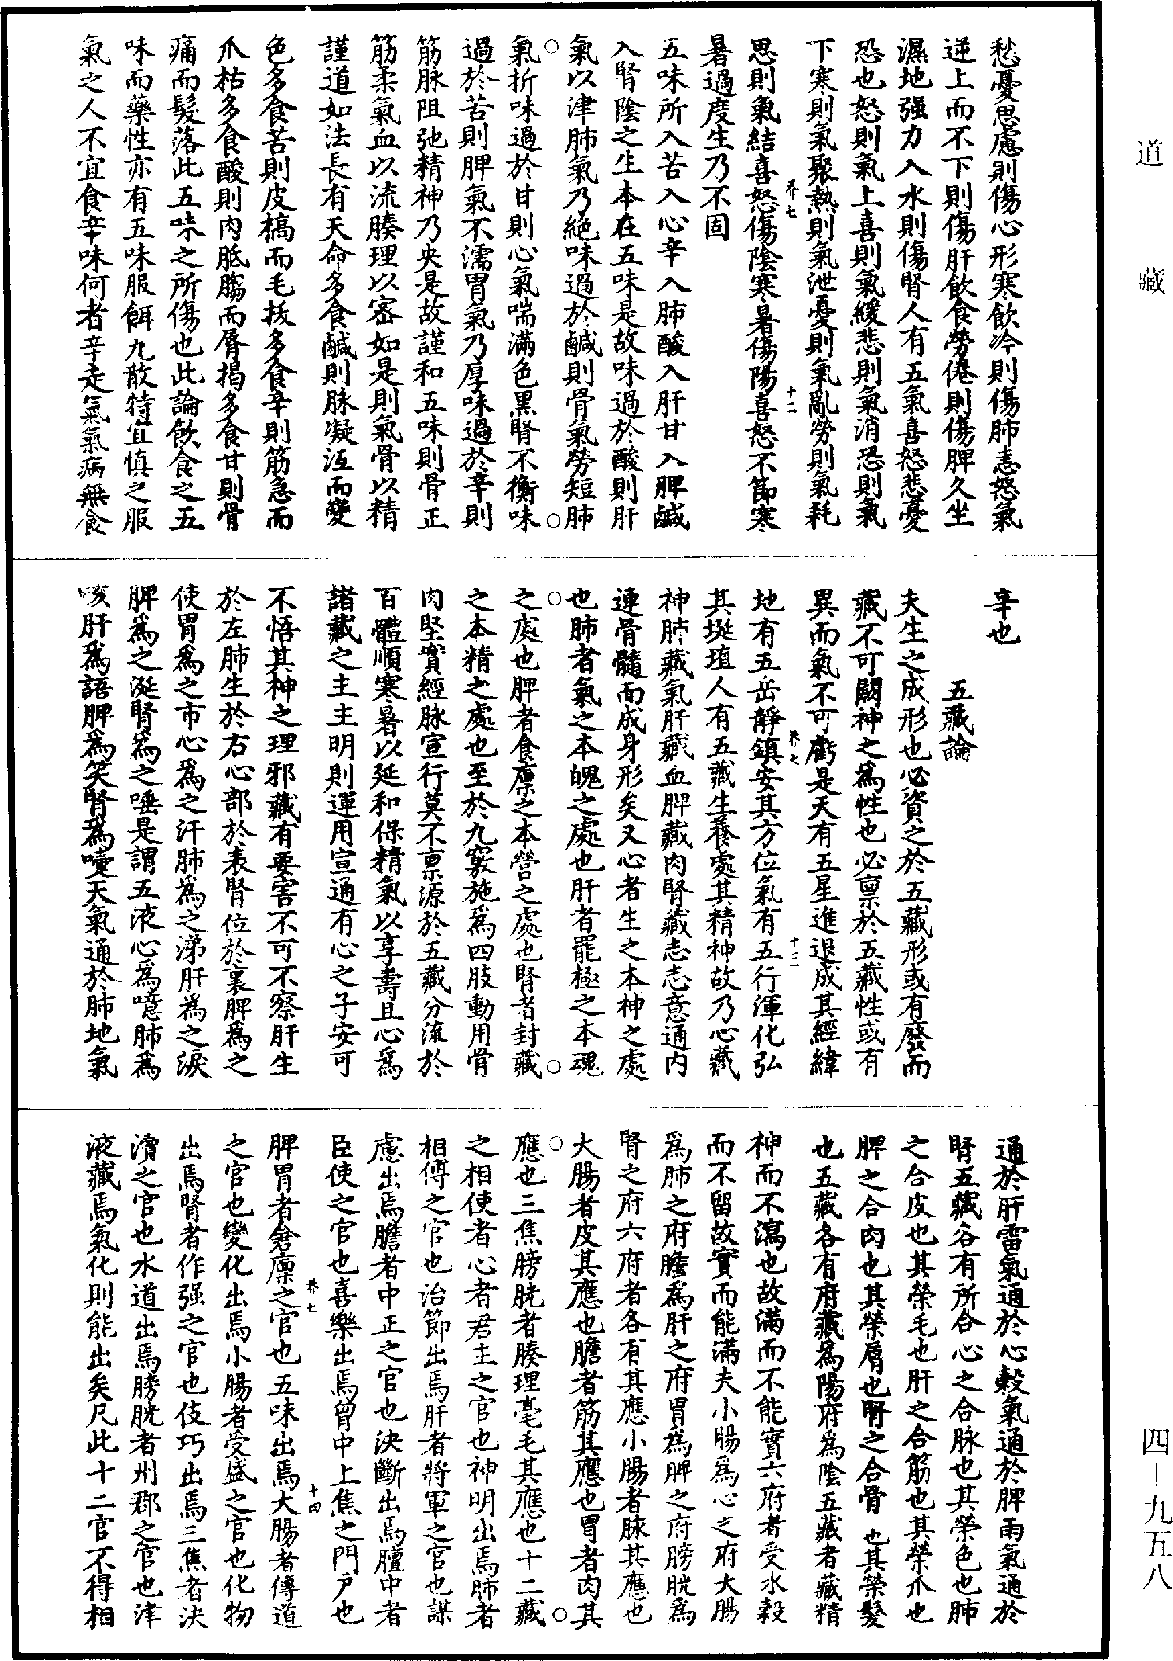 道藏
四—九五八
愁憂思慮則傷心形寒飲冷則傷肺恚怒氣
逆上而不下則傷肝飲食勞倦則傷脾久坐
濕地强力入水則傷腎人有五氣喜怒悲憂
恐也怒則氣上喜則氣緩悲則氣消恐則氣
下寒則氣聚熱則氣泄憂則氣亂勞則氣耗
思則氣結喜怒傷陰寒暑傷陽喜怒不節寒
養七
十二
暑過度生乃不固
五味所入苦入心辛入肺酸入肝甘入脾鹹
入腎陰之生本在五味是故味過於酸則肝
氣以津肺氣乃絕味過於鹹則骨氣勞短肺
氣折味過於甘則心氣喘滿色黑腎不衡味
過於苦則脾氣不濡胃氣乃厚味過於辛則
筋脉阻弛精神乃央是故謹和五味則骨正
筋柔氣血以流腠理以密如是則氣骨以精
謹道如法長有天命多食鹹則脉凝沍而變
色多食苦則皮槁而毛拔多食辛則筋急而
爪枯多食酸則肉胝䐢而脣揭多食甘則骨
痛而髮落此五味之所傷也此論飲食之五
味而藥性亦有五味服餌九散特宜慎之服
氣之人不宜食辛味何者辛走氣氣病無食
辛也
五藏論
夫生之成形也必資之於五藏形或有廢而
藏不可闕神之為性也必稟於五藏性或有
異而氣不可虧是天有五星進退成其經緯
養七
十三
地有五岳靜鎮安其方位氣有五行渾化弘
其埏埴人有五藏生養處其精神故乃心藏
神肺藏氣肝藏血脾藏肉腎藏志志意通內
連骨髓而成身形矣又心者生之本神之處
也肺者氣之本魄之處也肝者罷極之本魂
之處也脾者食廩之本營之處也腎者封藏
之本精之處也至於九竅施為四肢動用骨
肉堅實經脉宣行莫不稟源於五藏分流於
百體順寒暑以延和保精氣以享壽且心為
諸藏之主主明則運用宣通有心之子安可
不悟其神之理邪藏有要害不可不察肝生
於左肺生於右心部於表腎位於裏脾為之
使胃為之市心為之汗肺為之涕肝為之淚
脾為之涎腎為之唾是謂五液心為噫肺為
咳肝為語脾為笑腎為嚏天氣通於肺地氣
通於肝雷氣通於心穀氣通於脾雨氣通於
腎五藏各有所合心之合脉也其榮色也肺
之合皮也其榮毛也肝之合筋也其榮爪也
脾之合肉也其榮脣也腎之合骨也其榮髮
也五藏各有府藏為陽府為陰五藏者藏精
神而不瀉也故滿而不能實六府者受水穀
而不留故實而能滿夫小腸為心之府大腸
為肺之府膽為肝之府胃為脾之府膀胱為
腎之府六府者各有其應小腸者脉其應也
大腸者皮其應也膽者筋其應也胃者肉其
應也三焦膀胱者腠理毫毛其應也十二藏
之相使者心者君主之官也神明出焉肺者
相傅之官也治節出焉肝者將軍之官也謀
慮出焉膽者中正之官也決斷出焉膻中者
臣使之官也喜樂出焉曾中上焦之門戶也
養七
十四
脾胃者倉廩之官也五味出焉大腸者傳道
之官也變化出焉小腸者受盛之官也化物
出焉腎者作强之官也伎巧出焉三焦者決
瀆之官也水道出焉膀胱者州郡之官也津
液藏焉氣化則能出矣凡此十二官不得相